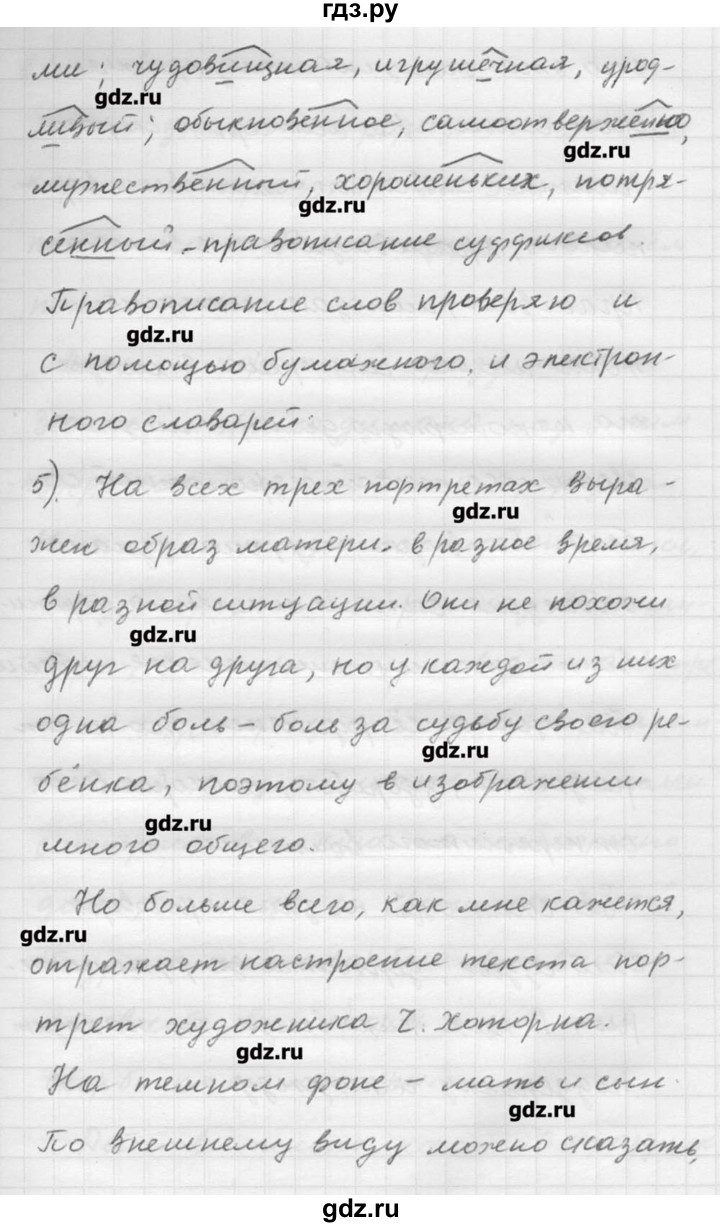 гдз.ру
ми; чудовищная, игрушечная, урод-
gdz.ru
ливый; обыкновенное, самоотверженно,
gdz.ru
мужественный, хорошеньких, потря-
gdz.ru
сенный - правописание суффиксов.
Правописание слов проверяю и
gdz.ru
с помощью бумажного, и электрон-
ного словарей.
5). На всех трех портретах выра-
gdz.ru
жен образ матери. в разное время,
в разной ситуации. Они не похожи
gdz.ru
друг на друга, но у каждой из них
одна боль - боль за судьбу своего ре-
gdz.ru
бёнка, поэтому в изображении
gdz.ru
много общего.
Но больше всего, как мне кажется,
gdz.ru
отражает настроение текста пор-
трет художника Ч. Хоторна.
gdz.ru
На темном фоне - мать и сын.
gdz.ru
По внешнему виду можно сказать,
gdz.ru